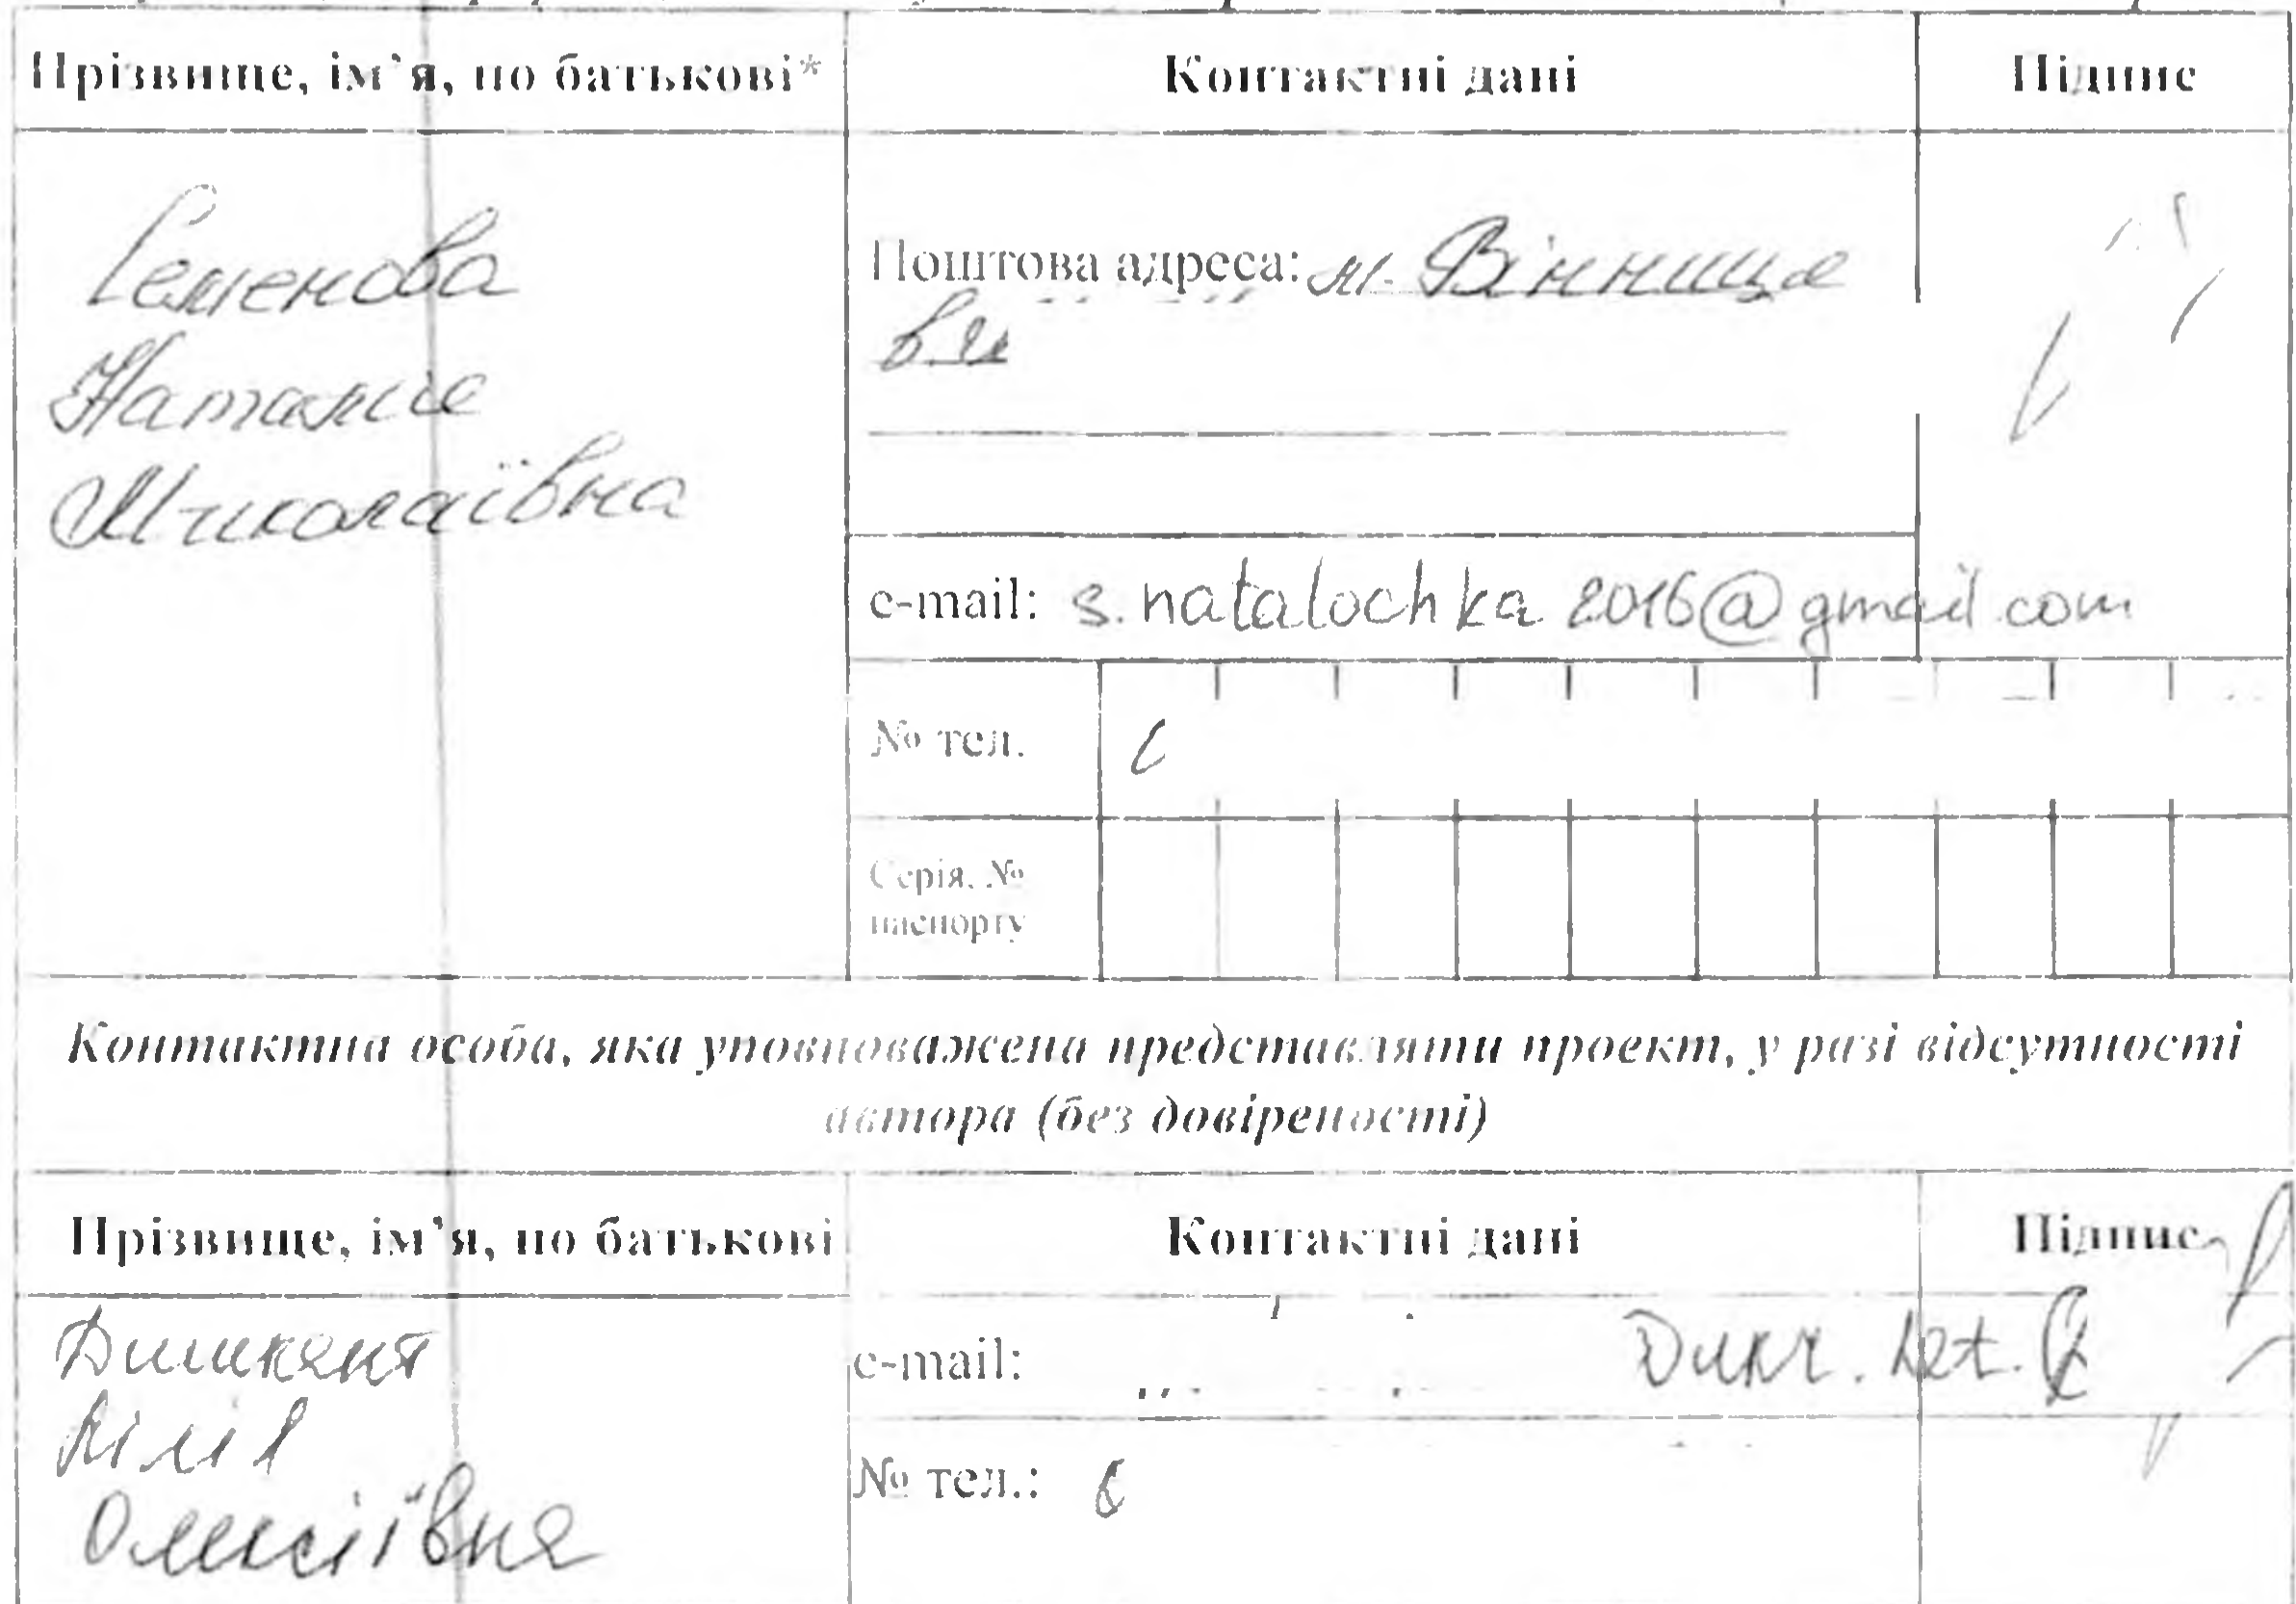 Прізвище, ім'я, по батькові* Контактні дані Підпис
Семенова
Наталія
Миколаївна
Поштова адреса: м. Вінниця
e-mail: s.natalochka2016@gmail.com
№ тел.
Серія, №
паспорту
Контактна особа, яка уповноважена представляти проект, у разі відсутності
автора (без довіреності)
Прізвище, ім'я, по батькові Контактні дані Підпис
Лілія
Олексіївна
e-mail:
№ тел.: